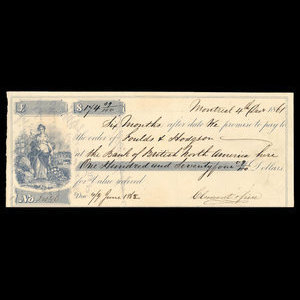 £ $ 174 29/100 Montreal 4th Dec 1861
Six Months after date We promise to pay to
the order of Foulds & Hodgson
at the Bank of British North America here
One Hundred and Seventy four 29/100 Dollars
for Value received
Due 4/7 June 1862
No.